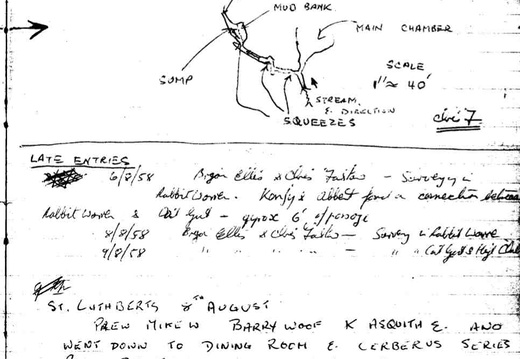 MUD BANK
MAIN CHAMBER
SUMP
SCALE
1" ≈ 40'
STREAM
& DIRECTION
SQUEEZES
LATE ENTRIES
6/8/58 Bryan Ellis & Chris Falshaw - Surveying in
Rabbit Warren. Kenny & Abbot found a connection between
Rabbit Warren & Cat Gut - approx 6' of passage
8/8/58 Bryan Ellis & Chris - Survey in Rabbit Warren
9/8/58 " " " - " "
ST. CUTHBERTS 8TH AUGUST
PREW MIKE W BARRY WOOF K ASQUITH E. AND
WENT DOWN TO DINING ROOM & CERBERUS SERIES